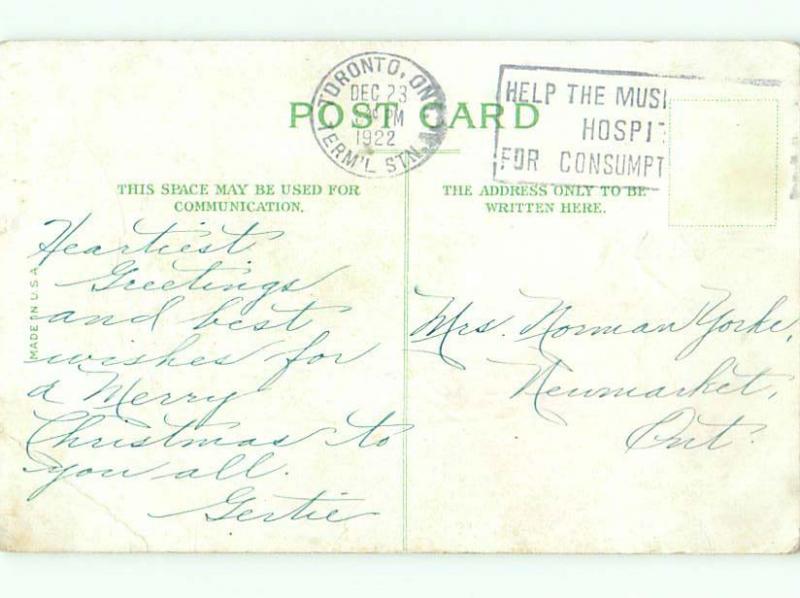 TORONTO, ONT.
DEC 23
PM
1922
TERM'L STN. A
HELP THE MUSK
HOSPIT
FOR CONSUMPT
POST CARD
THIS SPACE MAY BE USED FOR
COMMUNICATION.
THE ADDRESS ONLY TO BE
WRITTEN HERE.
MADE IN U.S.A.
Heartiest
Greetings
and best
wishes for
a Merry
Christmas to
you all.
Gertie
Mrs. Norman Yorke,
Newmarket,
Ont.